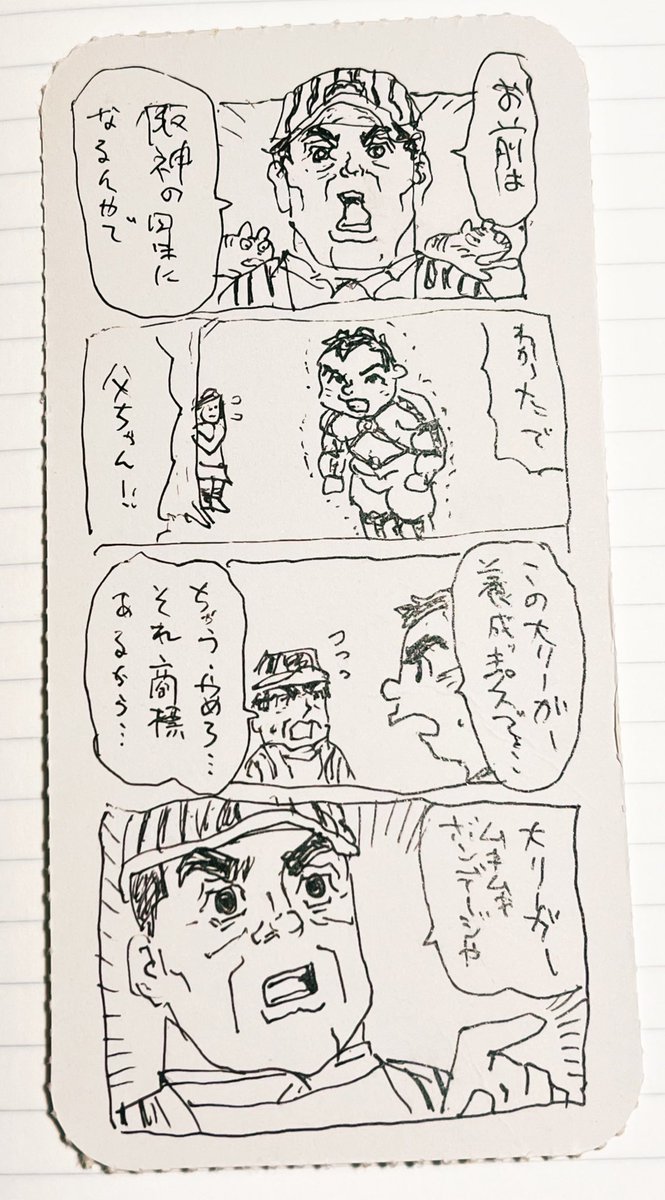 お前は
阪神の星に
なるんやで
わかったで
父ちゃん!!
この大リーガー
養成ギプスで…
ちがう・やめろ…
それ商標
あるから…
大リガー
ムキムキ
ボンデージや